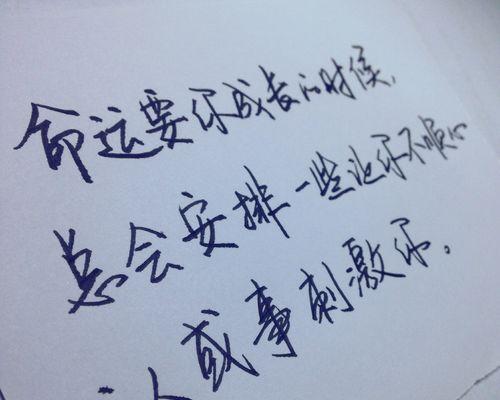 命运要你成长的时候，
总会安排一些让你不顺心
人或事刺激你。